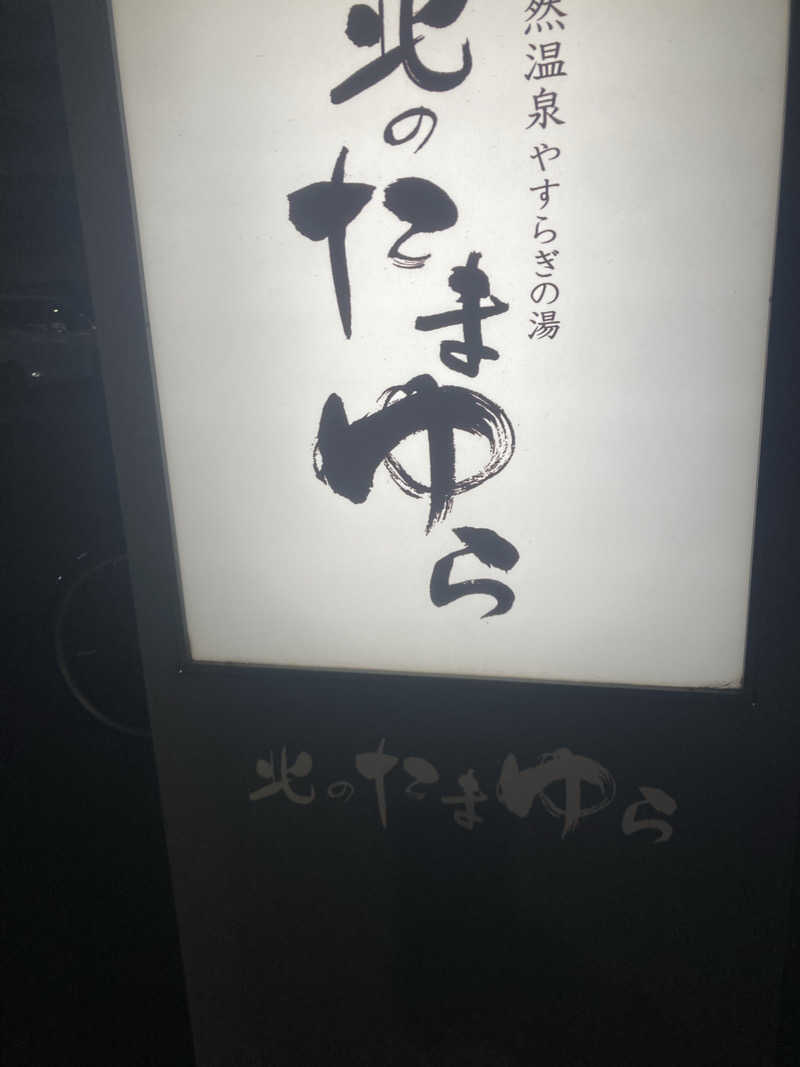 然温泉 やすらぎの湯
北のたまゆら
北のたまゆら